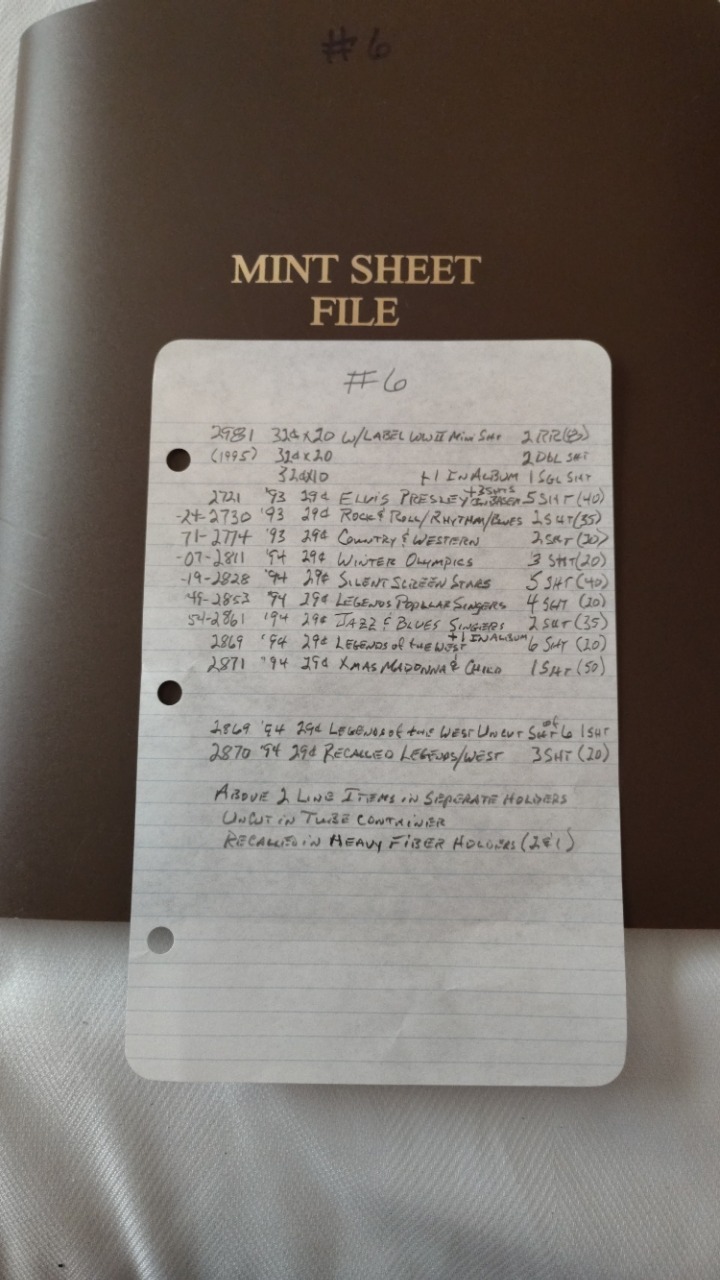 #6
MINT SHEET
FILE
#6
2981 32¢ x 20 W/LABEL WWII MINI SHT 2 RR(8)
(1995) 32¢ x 20 2 DBL SHT
32¢x10 +1 IN ALBUM 1 SGL SHT
2721 '93 29¢ ELVIS PRESLEY +3 SHTS IN 5 SHT (40)
-24-2730 '93 29¢ ROCK & ROLL/RHYTHM/BLUES 2 SHT (35)
71-2774 '93 29¢ COUNTRY & WESTERN 2 SHT (20)
-07-2811 '94 29¢ WINTER OLYMPICS 3 SHT (20)
-19-2828 '94 29¢ SILENT SCREEN STARS 5 SHT (40)
49-2853 '94 29¢ LEGENDS POPULAR SINGERS 4 SHT (20)
54-2861 '94 29¢ JAZZ & BLUES SINGERS 2 SHT (35)
2869 '94 29¢ LEGENDS of the WEST +1 IN ALBUM 6 SHT (20)
2871 '94 29¢ XMAS MADONNA & CHILD 1 SHT (50)
2869 '94 29¢ LEGENDS of the WEST UNCUT SHT of 6 1 SHT
2870 '94 29¢ RECALLED LEGENDS/WEST 3 SHT (20)
ABOVE 2 LINE ITEMS IN SEPERATE HOLDERS
UNCUT IN TUBE CONTAINER
RECALLED IN HEAVY FIBER HOLDERS (2&1)